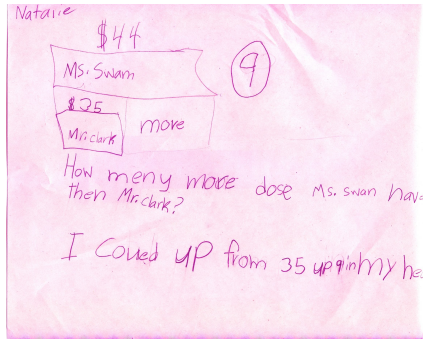 Natalie
$44
Ms. Swam
9
$35
Mr. Clark
more
How meny more dose Ms. Swan have
then Mr. Clark?
I Coued up from 35 up 9 in my hea